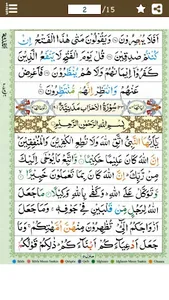 2 /15
اَفَلَا يُبْصِرُوْنَ وَيَقُوْلُوْنَ مَتٰى هٰذَا الْفَتْحُ اِنْ
كُنْتُمْ صٰدِقِيْنَ قُلْ يَوْمَ الْفَتْحِ لَا يَنْفَعُ الَّذِيْنَ
كَفَرُوْۤا اِيْمَانُهُمْ وَلَا هُمْ يُنْظَرُوْنَ فَاَعْرِضْ
عَنْهُمْ وَانْتَظِرْ اِنَّهُمْ مُّنْتَظِرُوْنَ
سُوْرَةُ الْاَحْزَابِ مَدَنِيَّةٌ
بِسْمِ اللّٰهِ الرَّحْمٰنِ الرَّحِيْمِ
يٰۤاَيُّهَا النَّبِيُّ اتَّقِ اللّٰهَ وَلَا تُطِعِ الْكٰفِرِيْنَ وَالْمُنٰفِقِيْنَ
اِنَّ اللّٰهَ كَانَ عَلِيْمًا حَكِيْمًا وَّاتَّبِعْ مَا يُوْحٰۤى اِلَيْكَ
مِنْ رَّبِّكَ اِنَّ اللّٰهَ كَانَ بِمَا تَعْمَلُوْنَ خَبِيْرًا
وَّتَوَكَّلْ عَلَى اللّٰهِ وَكَفٰى بِاللّٰهِ وَكِيْلًا مَا جَعَلَ
اللّٰهُ لِرَجُلٍ مِّنْ قَلْبَيْنِ فِيْ جَوْفِهٖ وَمَا جَعَلَ
اَزْوَاجَكُمُ الّٰٓـِٔيْ تُظٰهِرُوْنَ مِنْهُنَّ اُمَّهٰتِكُمْ وَمَا
جَعَلَ اَدْعِيَآءَكُمْ اَبْنَآءَكُمْ ذٰلِكُمْ قَوْلُكُمْ